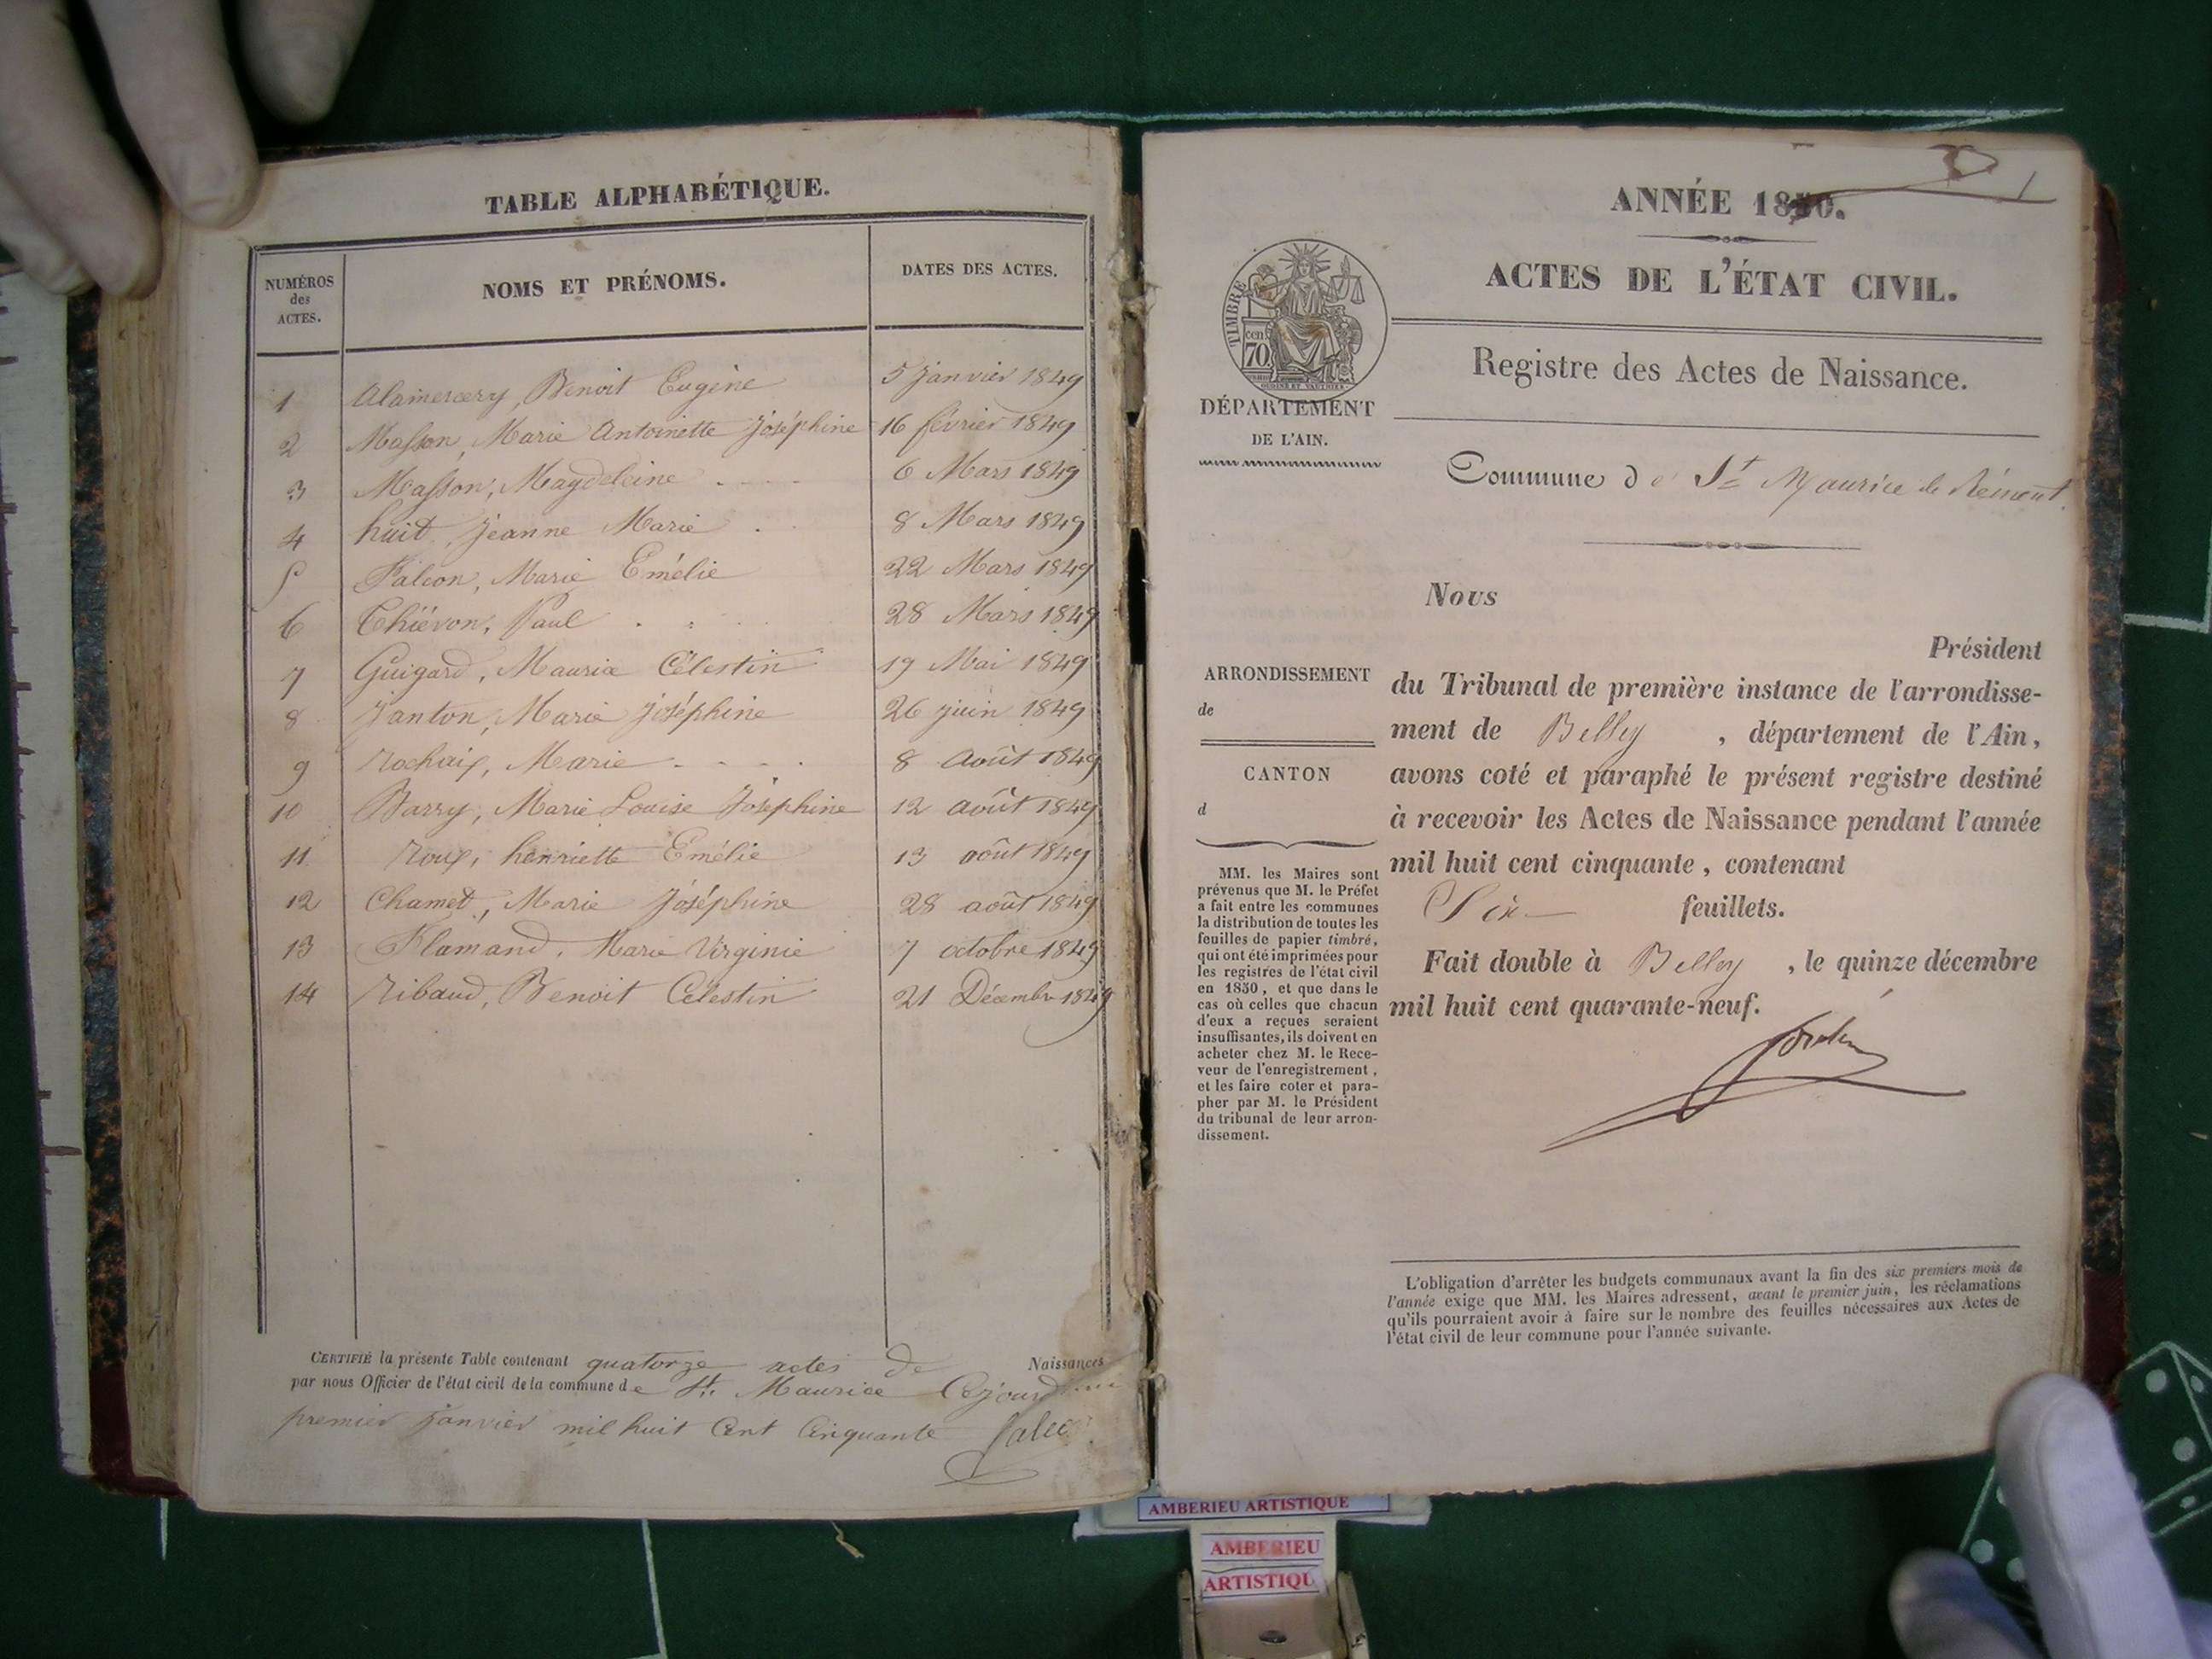 TABLE ALPHABÉTIQUE.
NUMÉROS
des
ACTES.
NOMS ET PRÉNOMS.
DATES DES ACTES.
1 Alamercery, Benoit Eugène 5 Janvier 1849
2 Masson, Marie Antoinette Joséphine 16 février 1849
3 Masson, Magdeleine 6 Mars 1849
4 huit, Jeanne Marie 8 Mars 1849
5 Falcon, Marie Emélie 22 Mars 1849
6 Thiévon, Paul 28 Mars 1849
7 Guigard, Maurice Célestin 19 Mai 1849
8 Janton, Marie Joséphine 26 juin 1849
9 Rochaix, Marie 8 Août 1849
10 Barry, Marie Louise Joséphine 12 août 1849
11 Roux, henriette Emélie 13 août 1849
12 Chamet, Marie Joséphine 28 août 1849
13 Flamand, Marie Virginie 7 octobre 1849
14 Ribaud, Benoit Célestin 21 Décembre 1849
CERTIFIÉ la présente Table contenant quatorze actes de Naissances
par nous Officier de l'état civil de la commune de St. Maurice Cejourd
premier janvier mil huit Cent Cinquante
ANNÉE 1850.
ACTES DE L'ÉTAT CIVIL.
TIMBRE
cen
70
Registre des Actes de Naissance.
DÉPARTEMENT
DE L'AIN.
Commune de St Maurice de Rément
Nous
Président
ARRONDISSEMENT
de
CANTON
d
du Tribunal de première instance de l'arrondisse-
ment de Belley , département de l'Ain,
avons coté et paraphé le présent registre destiné
à recevoir les Actes de Naissance pendant l'année
mil huit cent cinquante, contenant
Six feuillets.
Fait double à Belley , le quinze décembre
mil huit cent quarante-neuf.
MM. les Maires sont
prévenus que M. le Préfet
a fait entre les communes
la distribution de toutes les
feuilles de papier timbré,
qui ont été imprimées pour
les registres de l'état civil
en 1850, et que dans le
cas où celles que chacun
d'eux a reçues seraient
insuffisantes, ils doivent en
acheter chez M. le Rece-
veur de l'enregistrement,
et les faire coter et para-
pher par M. le Président
du tribunal de leur arron-
dissement.
L'obligation d'arrêter les budgets communaux avant la fin des six premiers mois de
l'année exige que MM. les Maires adressent, avant le premier juin, les réclamations
qu'ils pourraient avoir à faire sur le nombre des feuilles nécessaires aux Actes de
l'état civil de leur commune pour l'année suivante.
AMBERIEU ARTISTIQUE
AMBERIEU
ARTISTIQU